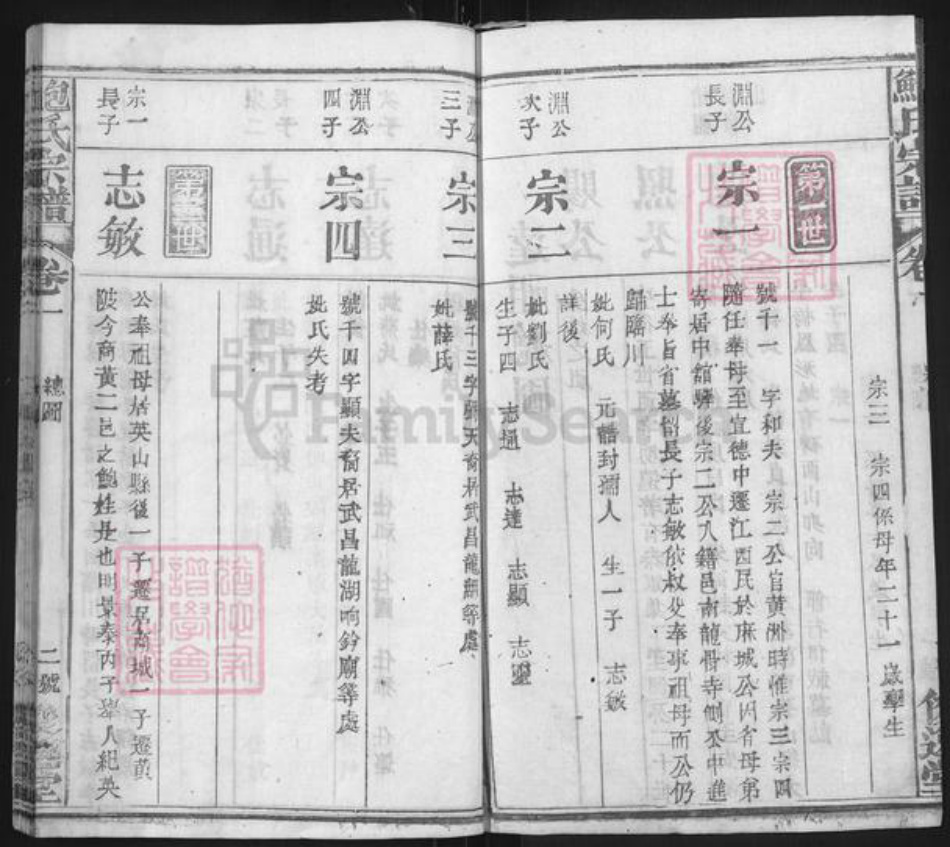 鮑氏宗譜
卷一
宗三 宗四係母年二十一歲孿生
第二世
淵公長子
宗一
號千一 字和夫 宗二公官黃洲時惟宗三宗四
隨任奉母至宣德中遷江西民於麻城公因省母第
寄居中舘驛後宗二公入籍邑南龍骨寺側公中進
士奉旨省墓留長子志敏依叔父奉事祖母而公仍
歸臨川
妣何氏 元誥封孺人 生一子 志敏
淵公次子
宗二
詳後
妣劉氏
生子四 志通 志達 志顯
淵公三子
宗三
號千三字 天裔居武昌龍 等處
妣薛氏
淵公四子
宗四
號千四字顯夫裔居武昌龍湖响鈴廟等處
妣氏失考
第三世
宗一長子
志敏
公奉祖母居英山縣後一子遷居商城一子遷黃
陂今商黃二邑之鮑姓是也明景泰丙子 人紀英
鮑氏宗譜
卷一
總圖
二號
FamilySearch